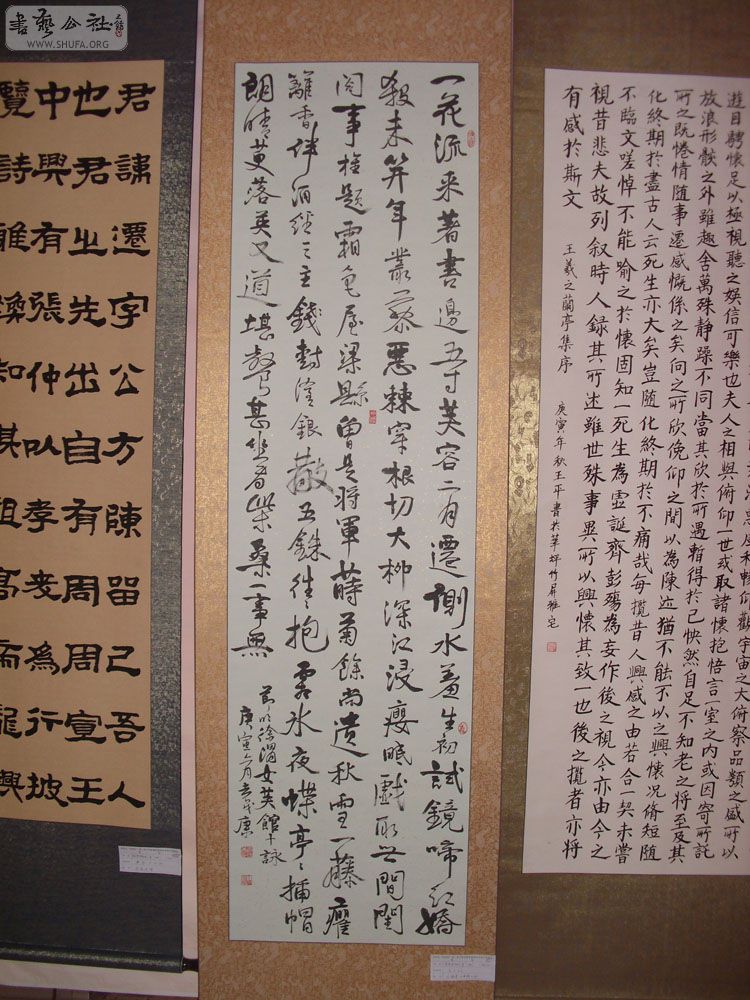 書藝公社
WWW.SHUFA.ORG
仰觀宇宙之大俯察品類之盛所以
遊目騁懷足以極視聽之娛信可樂也夫人之相與俯仰一世或取諸懷抱悟言一室之內或因寄所託
放浪形骸之外雖趣舍萬殊静躁不同當其欣於所遇暫得於己怏然自足不知老之将至及其
所之既惓情随事遷感慨係之矣向之所欣俛仰之間以為陳迹猶不能不以之興懷况脩短随
化終期於盡古人云死生亦大矣豈随化終期於不痛哉每攬昔人興感之由若合一契未嘗
不臨文嗟悼不能喻之於懷固知一死生為虚誕齊彭殤為妄作後之視今亦由今之
視昔悲夫故列叙時人録其所述雖世殊事異所以興懷其致一也後之攬者亦将
有感於斯文
王羲之蘭亭集序
庚寅年秋王平書於華坪竹屏雅宅
一花流来著書邊五寸芙容二月遷側水羞生初試鏡啼紅嬌
殺未笄年叢叢惡棘穿根切大柳深江浸癭眠戲取世間閨
閣事 題霜色屋梁縣曾是将軍蒔菊餘尚遺秋雪一藤癯
籬香伴酒經三主錢對淫銀散五銖往往抱雲氷夜蝶亭亭插帽
朗晴萸落英又道堪餐甚坐看柴桑一事無
節明徐渭女芙館十詠
庚寅
君諱遷字公方陳留己吾人
也君之先出自有周周宣王
中興有張仲以孝友為行披
覽詩雅煥知其祖高帝龍興